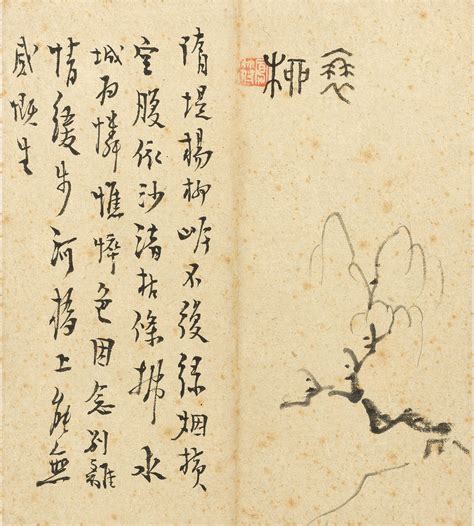 衰柳
隋堤楊柳岸不復綠烟橫
空腹依沙渚枯條拂水
城为憐憔悴色因念别離
情緩步河橋上能無
感慨生